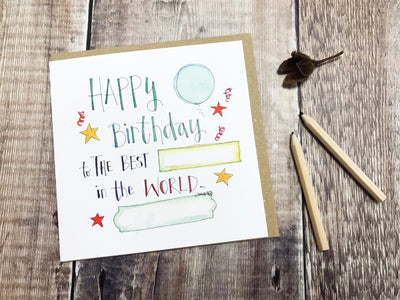 HAPPY
Birthday
to THE BEST
in the WORLD